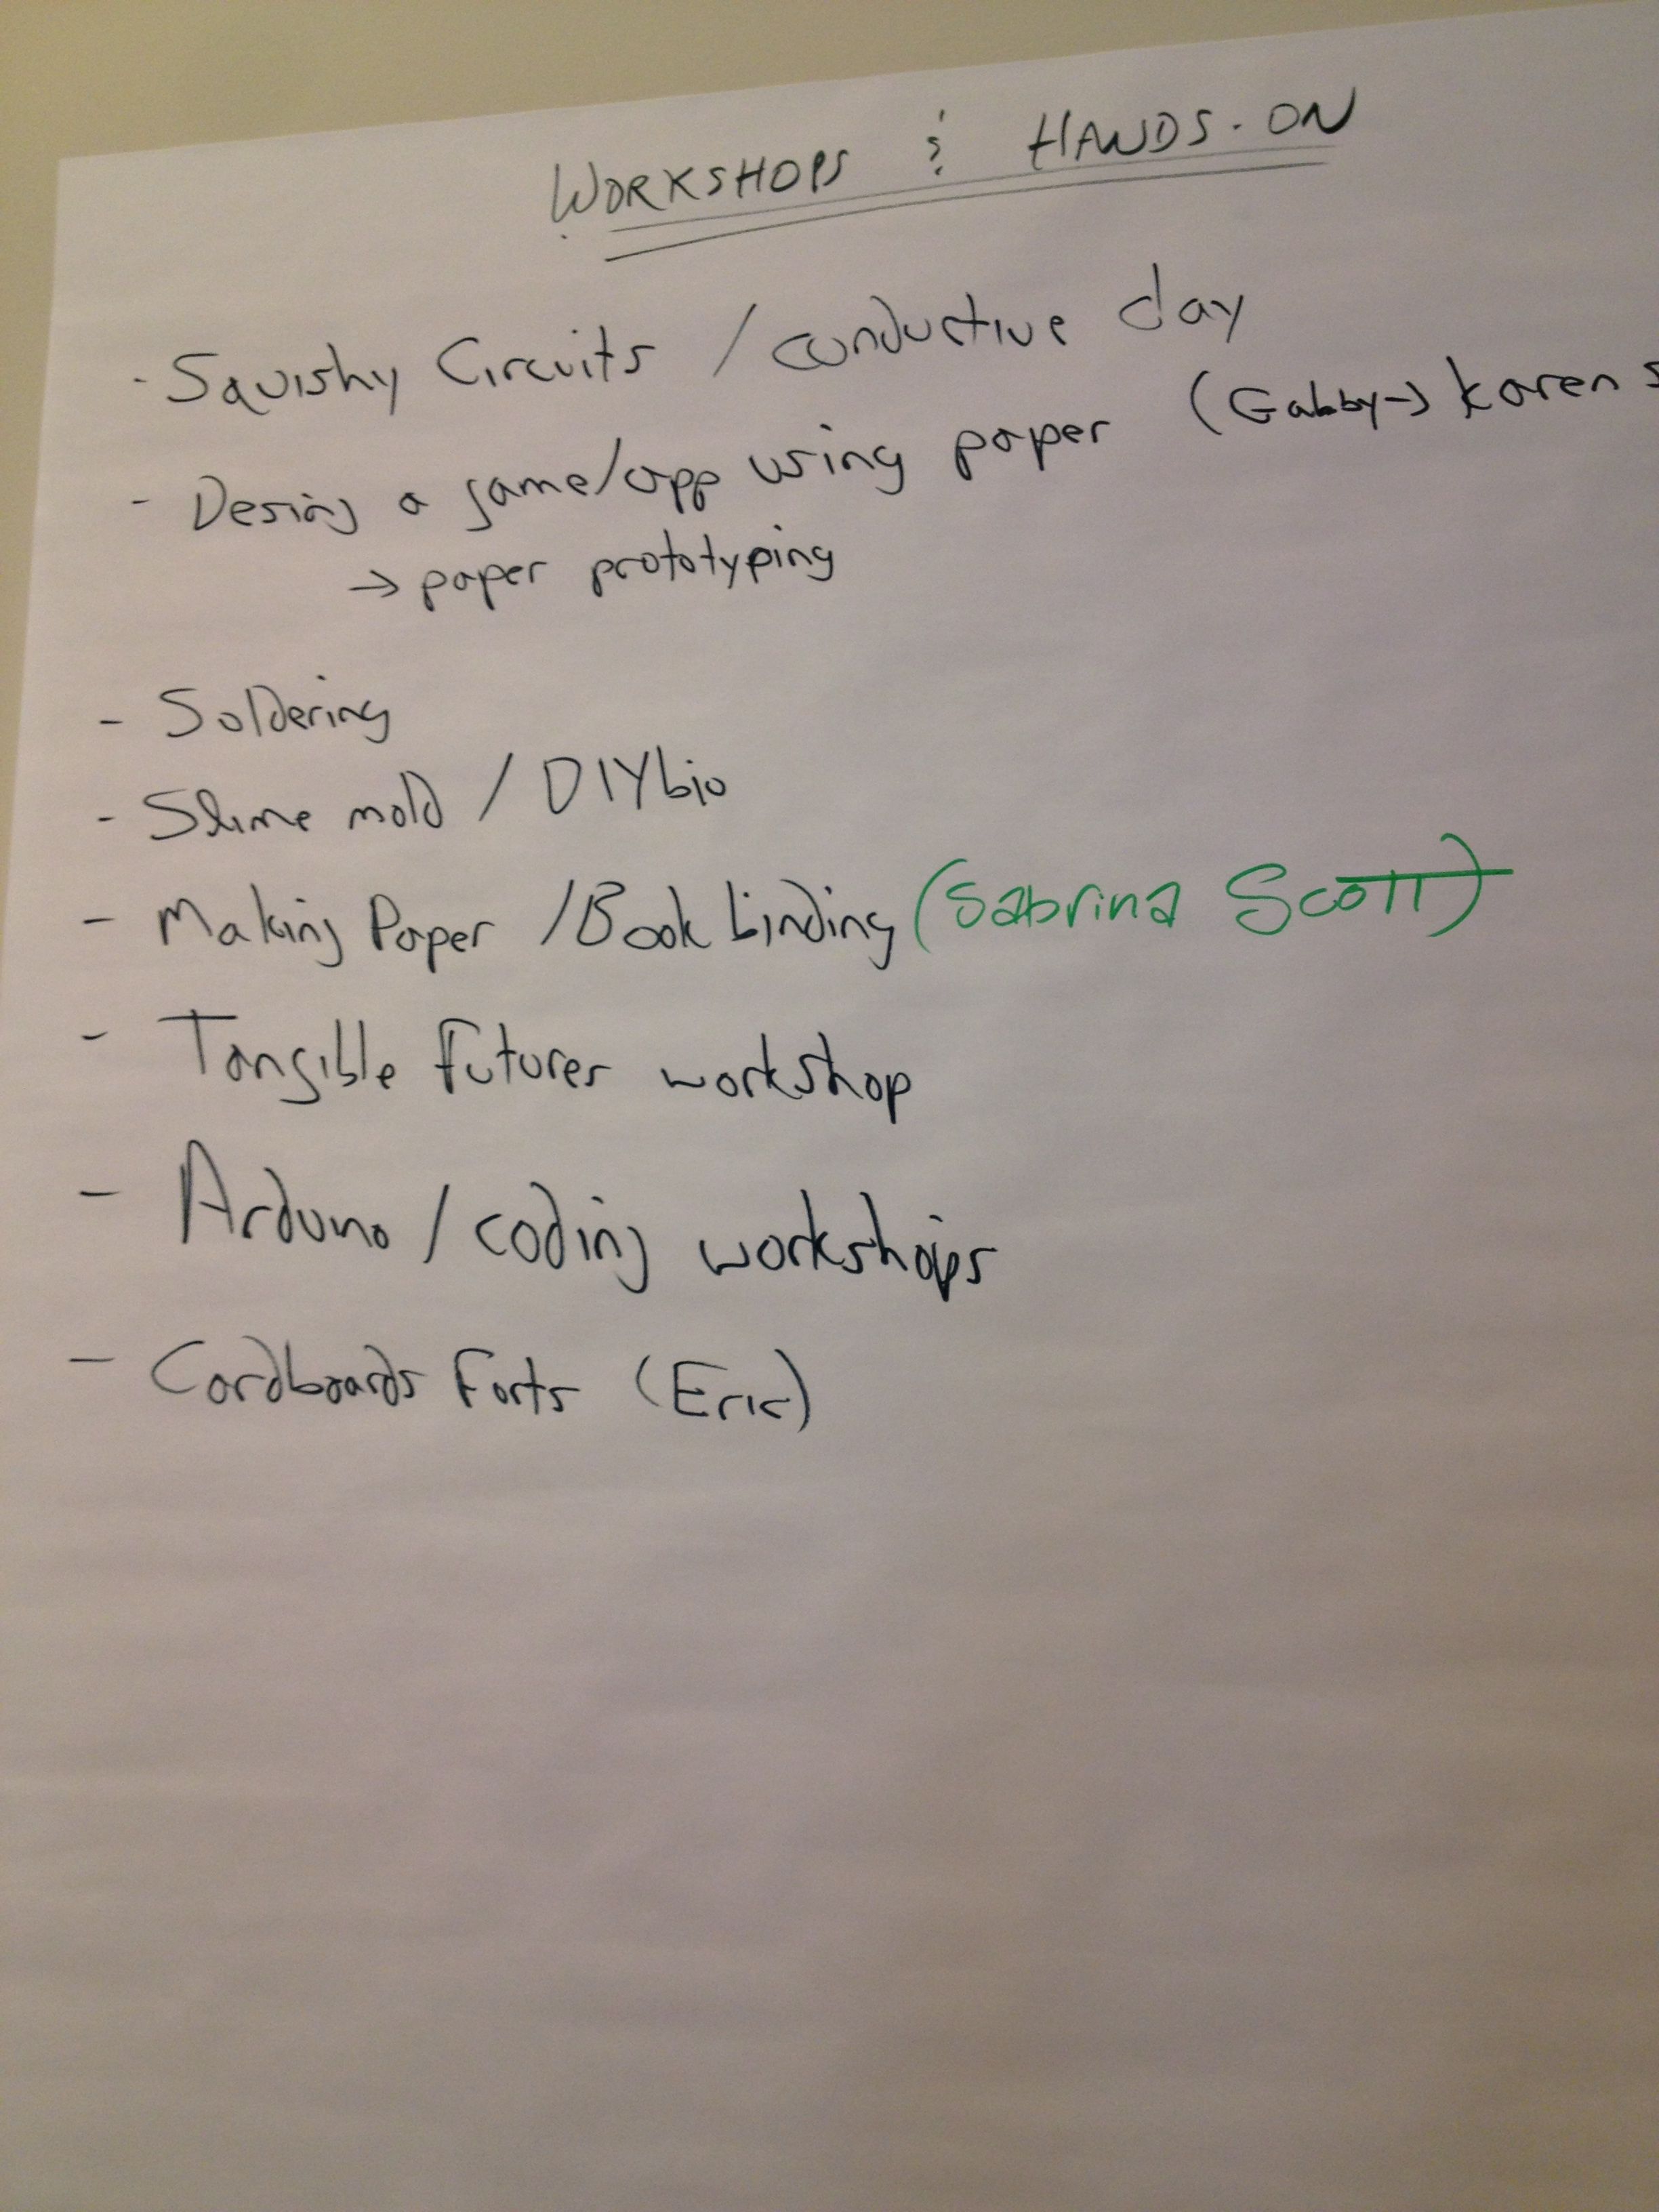 WORKSHOPS & HANDS-ON
- Squishy Circuits / conductive clay
- Desing a game/app using paper (Gabby→ Karen S
→ paper prototyping
- Soldering
- Slime mold / DIYbio
- Making Paper / Book binding (Sabrina Scott)
- Tangible Futures workshop
- Arduino / coding workshops
- Cardboards Forts (Eric)